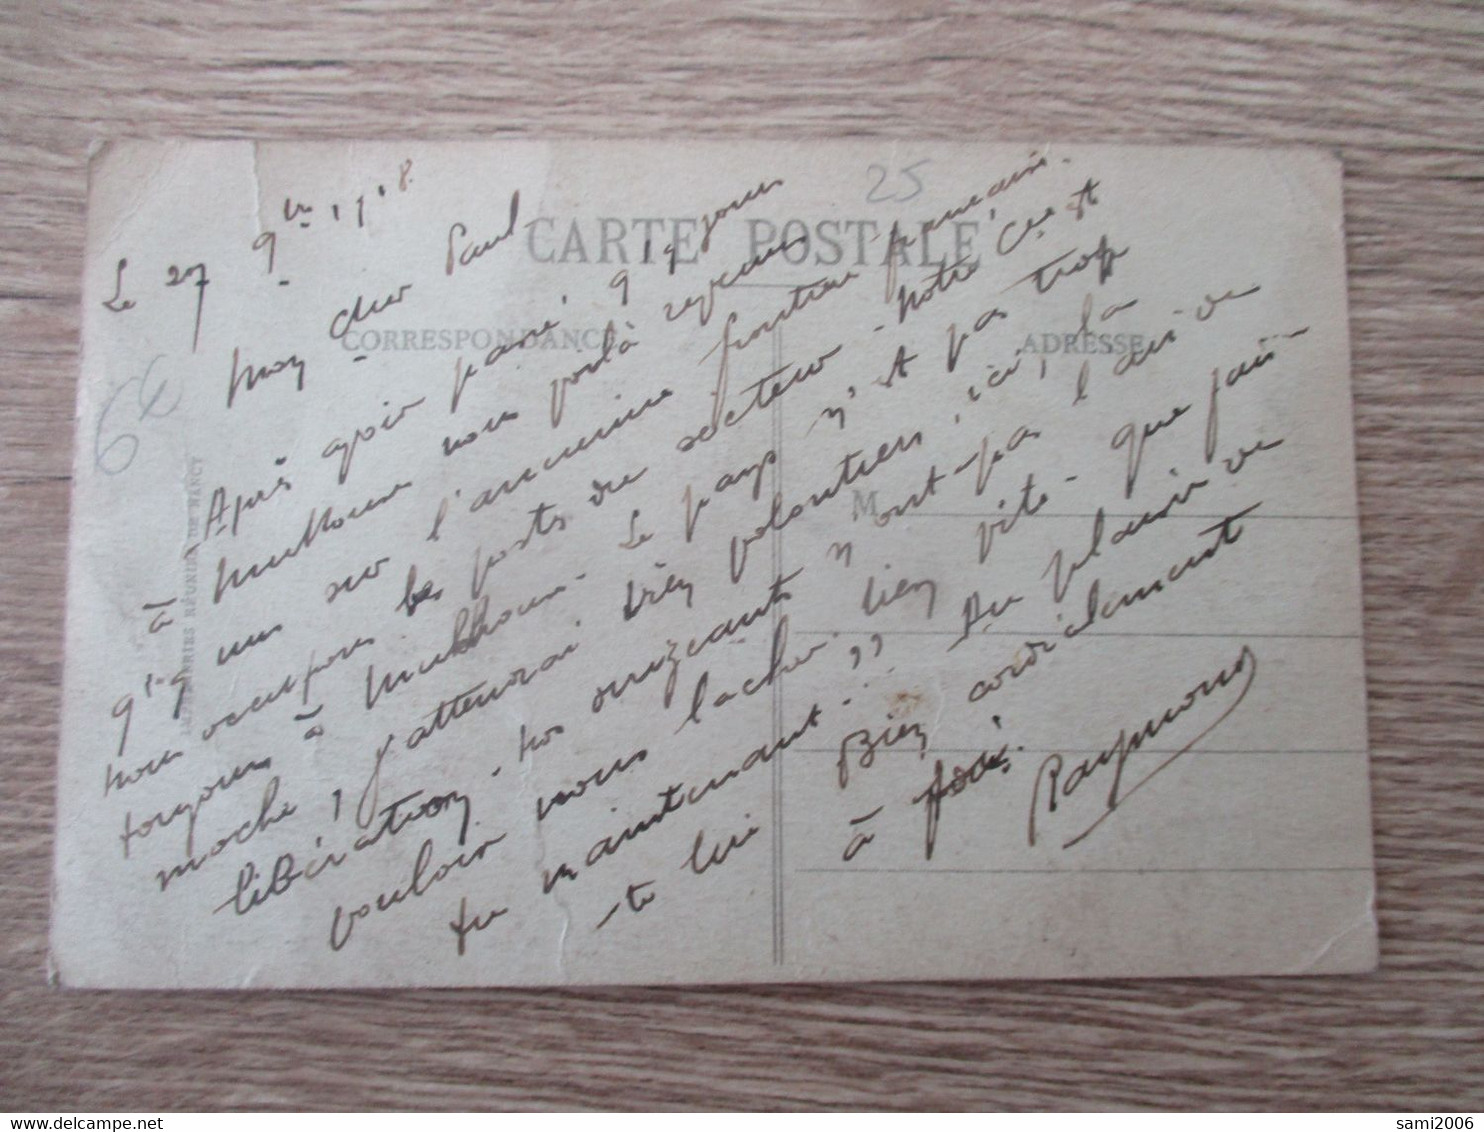 25
64
CARTE POSTALE
CORRESPONDANCE
ADRESSE
M
IMPRIMERIES RÉUNIES DE NANCY
Le 27 9bre 1918.
Mon cher Paul
Après avoir passé 9 jours
à Mulhouse nous voilà revenus
sur l'ancienne frontière française.
nous occupons les posts du secteur - Notre Ce est
toujours à Mulhouse. Le pays n'est pas trop
moche, j'attendrai bien volontiers, ici, la
libération. nos dirigeants n'ont pas l'air de
vouloir nous lacher bien vite. que fais-
tu maintenant ?? Au plaisir de
te lire
Bien cordialement
à toi.
Raymond
sami2006